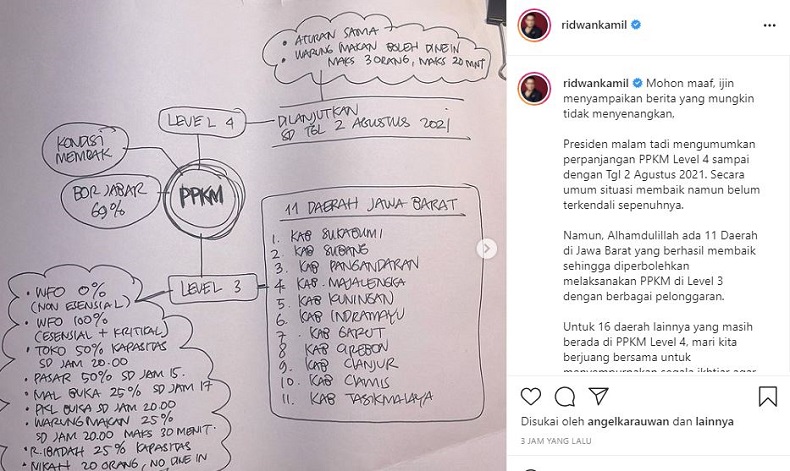 • ATURAN SAMA
• WARUNG MAKAN BOLEH DINE IN
MAKS 3 ORANG, MAKS 20 MNT
LEVEL 4
DILANJUTKAN
SD TGL 2 AGUSTUS 2021
KONDISI
MEMBAIK
BOR JABAR
69%
PPKM
11 DAERAH JAWA BARAT
1. KAB SUKABUMI
2. KAB SUBANG
3. KAB PANGANDARAN
4. KAB MAJALENGKA
5. KAB KUNINGAN
6. KAB INDRAMAYU
7. KAB GARUT
8. KAB CIREBON
9. KAB CIANJUR
10. KAB CIAMIS
11. KAB TASIKMALAYA
LEVEL 3
• WFO 0%
(NON ESENSIAL)
• WFO 100%
(ESENSIAL + KRITIKAL)
• TOKO 50% KAPASITAS
SD JAM 20.00
• PASAR 50% SD JAM 15.
• MAL BUKA 25% SD JAM 17
• PKL BUKA SD JAM 20.00
• WARUNG MAKAN 25%
SD JAM 20.00 MAKS 30 MENIT.
• R. IBADAH 25% KAPASITAS
• NIKAH 20 ORANG, NO DINE IN
ridwankamil
ridwankamil Mohon maaf, ijin
menyampaikan berita yang mungkin
tidak menyenangkan,
Presiden malam tadi mengumumkan
perpanjangan PPKM Level 4 sampai
dengan Tgl 2 Agustus 2021. Secara
umum situasi membaik namun belum
terkendali sepenuhnya.
Namun, Alhamdulillah ada 11 Daerah
di Jawa Barat yang berhasil membaik
sehingga diperbolehkan
melaksanakan PPKM di Level 3
dengan berbagai pelonggaran.
Untuk 16 daerah lainnya yang masih
berada di PPKM Level 4, mari kita
berjuang bersama untuk
menyempurnakan segala ikhtiar agar
Disukai oleh angelkarauwan dan lainnya
3 JAM YANG LALU